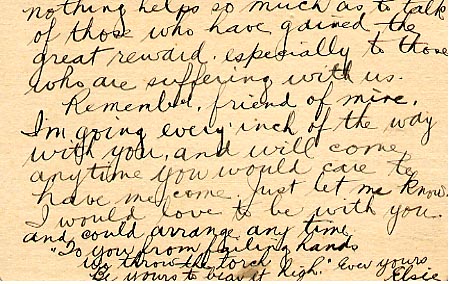 nothing helps so much as to talk
of those who have gained the
great reward, especially to those
who are suffering with us.
Remember, friend of mine,
I'm going every inch of the way
with you, and will come
anytime you would care to
have me come. Just let me know.
I would love to be with you.
and could arrange any time.
"To you from failing hands
we throw the torch
Be yours to bear it high." Ever yours
Elsie